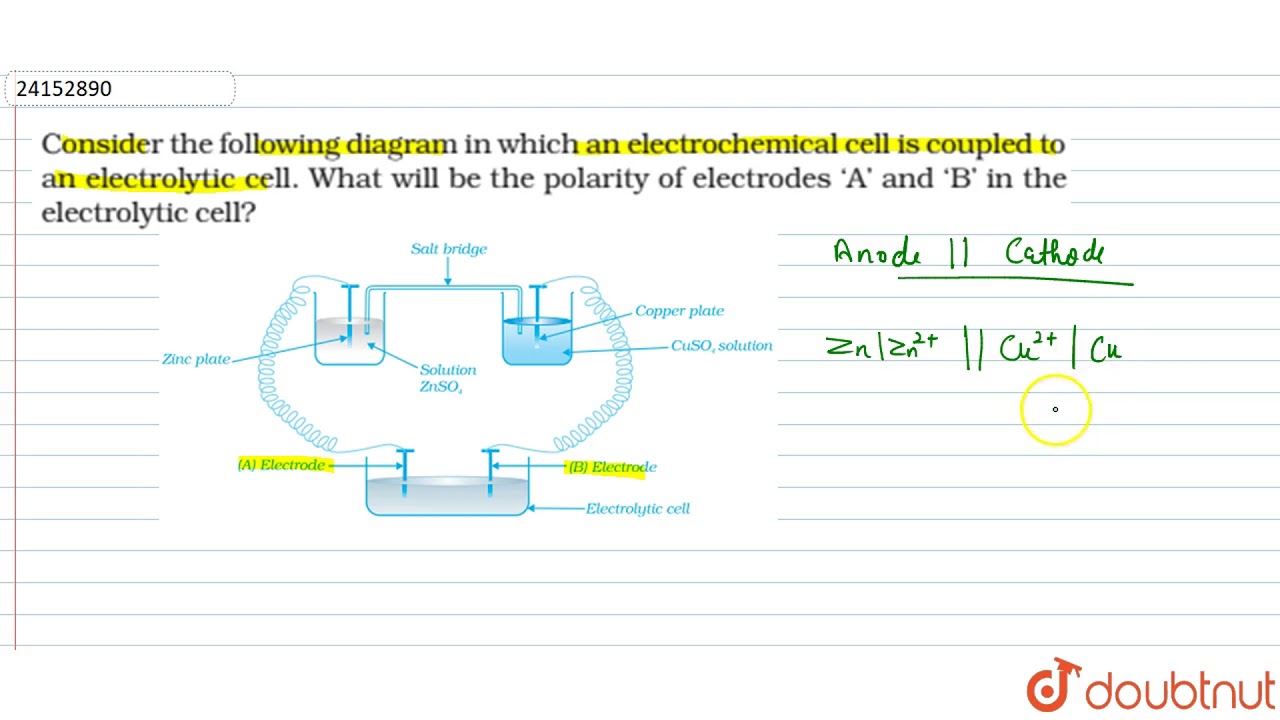 24152890
Consider the following diagram in which an electrochemical cell is coupled to
an electrolytic cell. What will be the polarity of electrodes ‘A’ and ‘B’ in the
electrolytic cell?
Salt bridge
Anode || Cathode
Copper plate
Zn|Zn²⁺ || Cu²⁺ | Cu
CuSO₄ solution
Zinc plate
Solution
ZnSO₄
(A) Electrode
(B) Electrode
Electrolytic cell
doubtnut